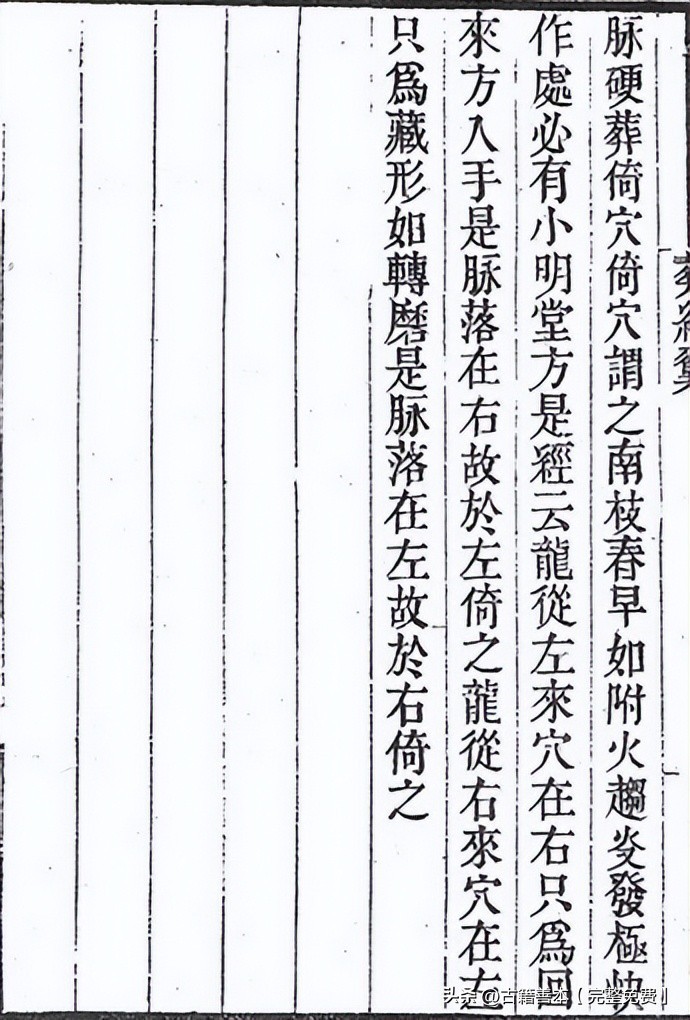 脉硬葬倚穴倚穴謂之南枝春早如附火趨炎發極快
作處必有小明堂方是經云龍從左來穴在右只爲回
來方入手是脉落在右故於左倚之龍從右來穴在左
只爲藏形如轉磨是脉落在左故於右倚之
头条 @古籍善本【完整免费】